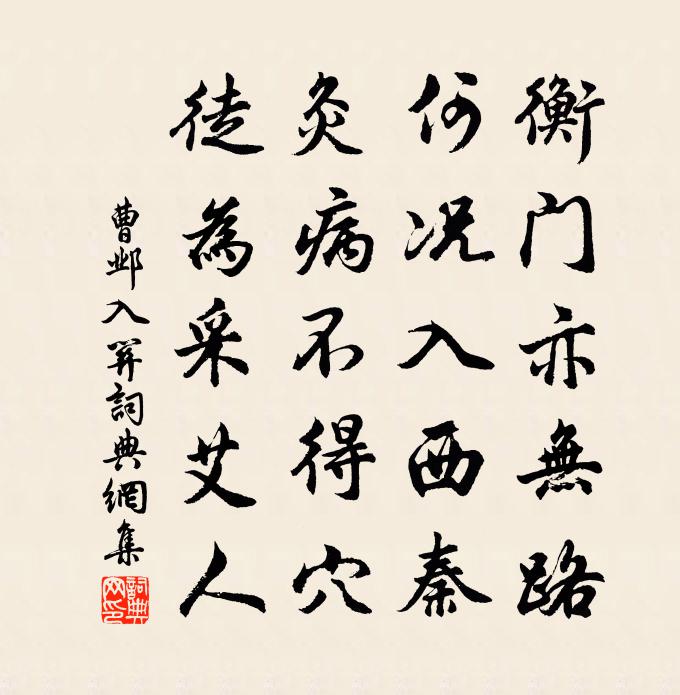 衡門亦無路
何况入西秦
灸病不得穴
徒為采艾人
曹邺入關詞典網集
詞典网印